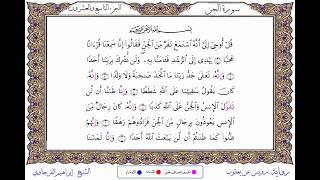 سورة الجن الجزء التاسع والعشرون
بِسْمِ اللَّهِ الرَّحْمَٰنِ الرَّحِيمِ
قُلْ أُوحِيَ إِلَيَّ أَنَّهُ ٱسْتَمَعَ نَفَرٌ مِّنَ ٱلْجِنِّ فَقَالُوا۟ إِنَّا سَمِعْنَا قُرْءَانًا
عَجَبًا يَهْدِي إِلَى ٱلرُّشْدِ فَـَٔامَنَّا بِهِۦ وَلَن نُّشْرِكَ بِرَبِّنَا أَحَدًا
وَإِنَّهُۥ تَعَٰلَىٰ جَدُّ رَبِّنَا مَا ٱتَّخَذَ صَٰحِبَةً وَلَا وَلَدًا وَإِنَّهُۥ
كَانَ يَقُولُ سَفِيهُنَا عَلَى ٱللَّهِ شَطَطًا وَإِنَّا ظَنَنَّا أَن لَّن
تَقَوَّلَ ٱلْإِنسُ وَٱلْجِنُّ عَلَى ٱللَّهِ كَذِبًا وَإِنَّهُۥ كَانَ رِجَالٌ مِّنَ
ٱلْإِنسِ يَعُوذُونَ بِرِجَالٍ مِّنَ ٱلْجِنِّ فَزَادُوهُمْ رَهَقًا وَإِنَّهُمْ
ظَنُّوا۟ كَمَا ظَنَنتُمْ أَن لَّن يَبْعَثَ ٱللَّهُ أَحَدًا وَإِنَّا لَمَسْنَا
رواية رويس عن يعقوب الشيخ إبراهيم